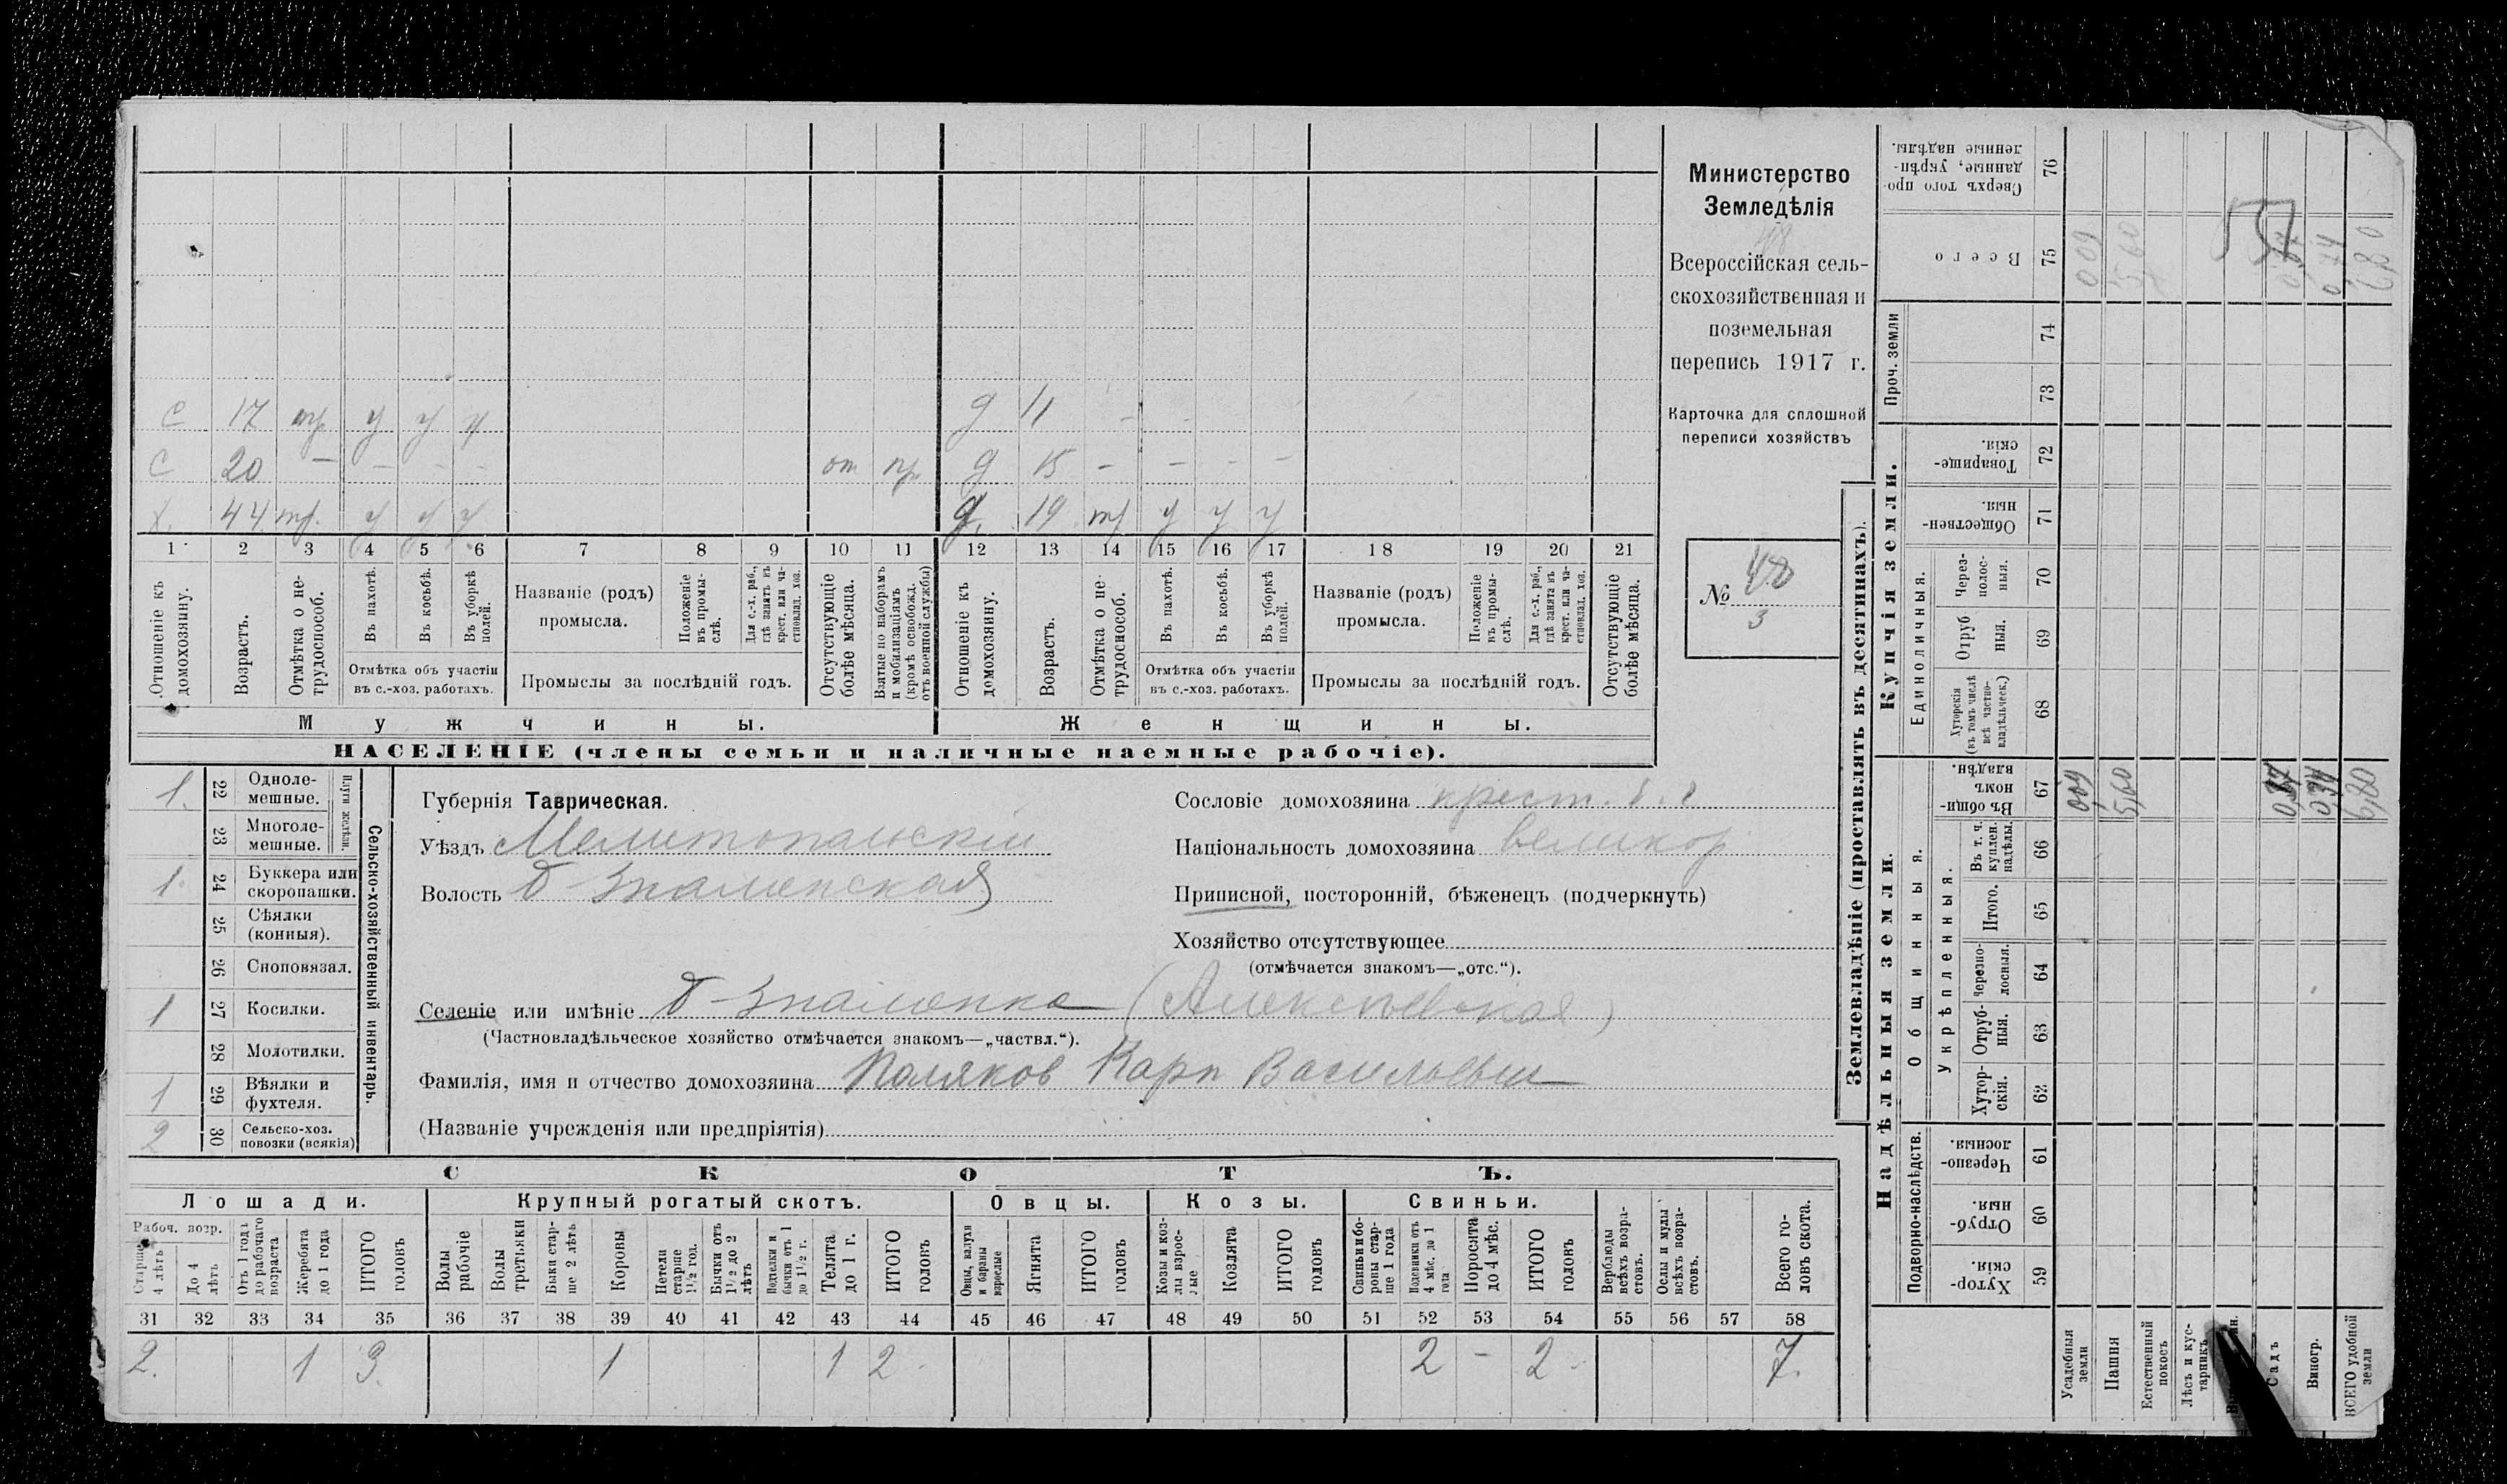 С 17 тр у у у д 11 -
С 20 - - - - от пр д 15 - - - -
Х. 44 тр. у у у д. 19 тр у у у
1 2 3 4 5 6 7 8 9 10 11 12 13 14 15 16 17 18 19 20 21
Отношеніе къ домохозяину.
Возрастъ.
Отмѣтка о нетрудоспособ.
Въ пахотѣ.
Въ косьбѣ.
Въ уборкѣ полей.
Отмѣтка объ участіи въ с.-хоз. работахъ.
Названіе (родъ) промысла.
Положеніе въ промыслѣ.
Для с.-х. раб., гдѣ занятъ въ крест. или частновлад. хоз.
Промыслы за послѣдній годъ.
Отсутствующіе болѣе мѣсяца.
Взятые по наборамъ и мобилизаціямъ (кромѣ освобожд. отъ военной службы)
Отношеніе къ домохозяину.
Возрастъ.
Отмѣтка о нетрудоспособ.
Въ пахотѣ.
Въ косьбѣ.
Въ уборкѣ полей.
Отмѣтка объ участіи въ с.-хоз. работахъ.
Названіе (родъ) промысла.
Положеніе въ промыслѣ.
Для с.-х. раб., гдѣ занята въ крест. или частновлад. хоз.
Промыслы за послѣдній годъ.
Отсутствующіе болѣе мѣсяца.
Мужчины. Женщины.
НАСЕЛЕНІЕ (члены семьи и наличные наемные рабочіе).
Министерство
Земледѣлія
Всероссійская сель-
скохозяйственная и
поземельная
перепись 1917 г.
Карточка для сплошной
переписи хозяйствъ
№ 48
3
Сельско-хозяйственный инвентарь.
Плуги желѣзн.
1. 22 Одноле-мешные.
23 Многоле-мешные.
1. 24 Буккера или скоропашки.
25 Сѣялки (конныя).
26 Сноповязал.
1 27 Косилки.
28 Молотилки.
1 29 Вѣялки и фухтеля.
2 30 Сельско-хоз. повозки (всякія)
Губернія Таврическая.
Уѣздъ Мелитопольскій
Волость Б-Знаменская
Сословіе домохозяина крест.
Національность домохозяина великор
Приписной, посторонній, бѣженецъ (подчеркнуть)
Хозяйство отсутствующее
(отмѣчается знакомъ—„отс.“).
Селеніе или имѣніе Б-Знаменка (Алексѣевская)
(Частновладѣльческое хозяйство отмѣчается знакомъ—„частвл.“).
Фамилія, имя и отчество домохозяина Поляков Карп Васильевич
(Названіе учрежденія или предпріятія)
СКОТЪ.
Лошади. Крупный рогатый скотъ. Овцы. Козы. Свиньи.
Рабоч. возр.
Старше 4 лѣтъ
До 4 лѣтъ
Отъ 1 года до рабочаго возраста
Жеребята до 1 года
ИТОГО головъ
Волы рабочіе
Волы третьяки
Быки старше 2 лѣтъ
Коровы
Нетели старше 1½ год.
Бычки отъ 1½ до 2 лѣтъ
Подтелки и бычки отъ 1 до 1½ г.
Телята до 1 г.
ИТОГО головъ
Овцы, валухи и бараны взрослые
Ягнята
ИТОГО головъ
Козы и козлы взрослые
Козлята
ИТОГО головъ
Свиньи боровы старше 1 года
Подсвинки отъ 4 мѣс. до 1 года
Поросята до 4 мѣс.
ИТОГО головъ
Верблюды всѣхъ возрастовъ.
Ослы и мулы всѣхъ возрастовъ.
Всего головъ скота.
31 32 33 34 35 36 37 38 39 40 41 42 43 44 45 46 47 48 49 50 51 52 53 54 55 56 57 58
2. 1 3 1 1 2 2 - 2 7.
Землевладѣніе (проставлять въ десятинахъ).
Надѣльныя земли. Купчія земли. Проч. земли
Подворно-наслѣдств. Общинныя. Укрѣпленныя. Единоличныя.
Хуторскія 59
Отрубныя. 60
Черезполосныя. 61
Хуторскія. 62
Отрубныя. 63
Черезполосныя. 64
Итого. 65
Въ т. ч. куплен. надѣлы. 66
Въ общинномъ владѣн. 67
Хуторскія (въ томъ числѣ всѣ частновладѣльческ.) 68
Отрубныя. 69
Черезполосныя. 70
Общественныя. 71
Товарищескія. 72
73 74
Всего 75
Сверхъ того проданные, укрѣпленные надѣлы. 76
Усадебныя земли 0,09 0,09
Пашня 5,60 5,60
Естественный покосъ
Лѣсъ и кустарникъ
Садъ
Виногр.
ВСЕГО удобной земли 6,80 6,80